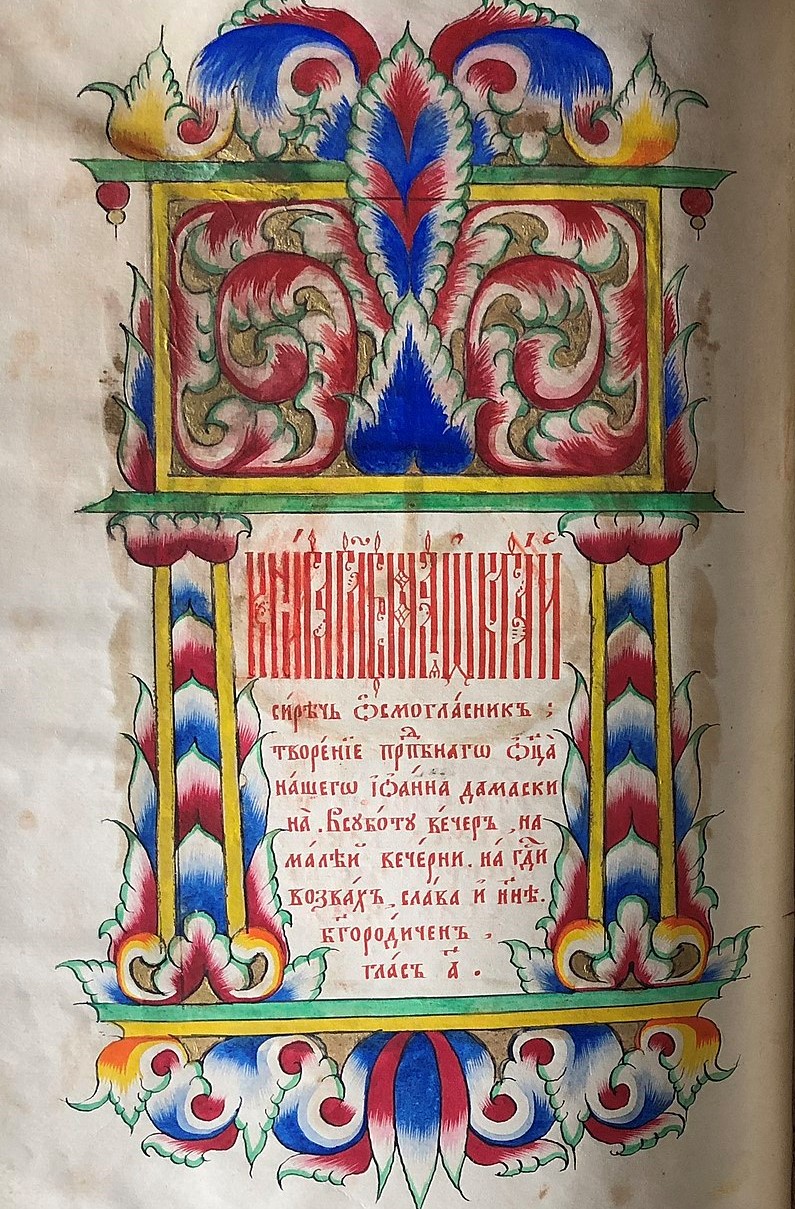 кни́га гл҃емаѧ ѻ҆хта́й
си́рѣчь ѻ҆смогла́сникъ ;
творе́нїе прпⷣбнагѡ ѻ҆ц҃а̀
на́шегѡ і҆ѡа́нна дамаски
на̀ . в̾суббо́ту ве́черъ , на
ма́лѣй вече́рни . на́ гдⷭ҇и
возва́хъ , сла́ва и҆ ны́нѣ .
бг҃оро́диченъ ,
гла́съ а҃ .